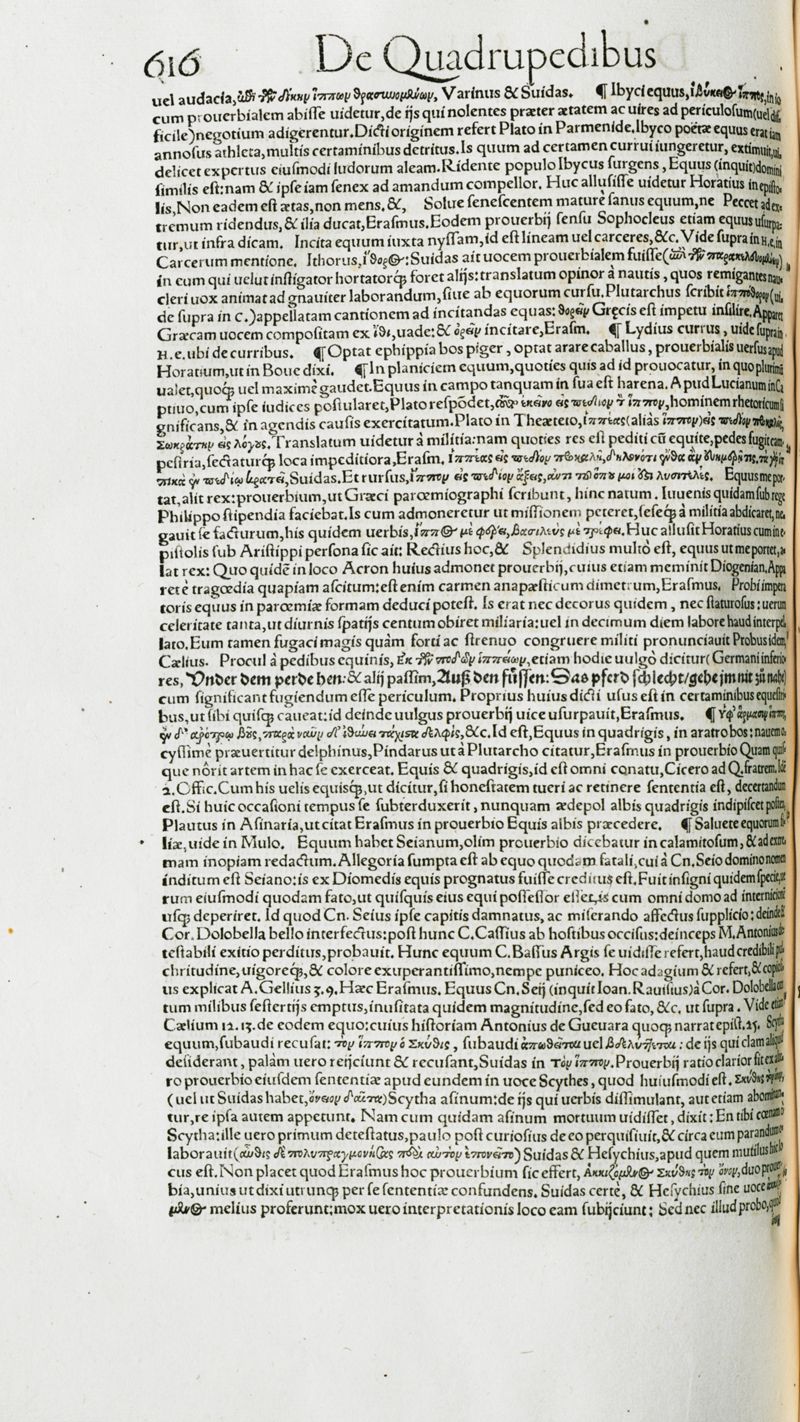 616 De Quadrupedibus
uel audacia, Varinus & Suidas. ¶ Ibyci equus,
cum prouerbialem abiſſe uidetur,de ijs qui nolentes præter ætatem ac uires ad periculoſum
ficile)negotium adigerentur.Dicti originem refert Plato in Parmenide.Ibyco poëtæ equus erat iam
annoſus athleta,multis certaminibus detritus.Is quum ad certamen currui iungeretur, extimuit,
delicet expertus eiuſmodi ludorum aleam.Ridente populo Ibycus ſurgens, Equus (inquit)domini
ſimilis eſt:nam & ipſe iam ſenex ad amandum compellor. Huc alluſiſſe uidetur Horatius in epiſto-
lis,Non eadem eſt ætas,non mens.&, Solue ſeneſcentem maturè ſanus equum,ne Peccet ad ex-
tremum ridendus,& ilia ducat,Eraſmus.Eodem prouerbij ſenſu Sophocleus etiam equus uſurpa-
tur,ut infra dicam. Incita equum iuxta nyſſam,id eſt lineam uel carceres,&c.Vide ſupra in H.e.in
Carcerum mentione. Ithorus, Suidas ait uocem prouerbialem fuiſſe
in eum qui uelut inſtigator hortatorq́; foret alijs:translatum opinor à nautis, quos remigantes nau-
cleri uox animat ad gnauiter laborandum,ſiue ab equorum curſu.Plutarchus ſcribit
de ſupra in c.)appellatam cantionem ad incitandas equas: Græcis eſt impetu inſilire.Apparet
Græcam uocem compoſitam ex ἴθι,uade:& incitare,Eraſm. ¶ Lydius currus, uide ſupra in
H.e.ubi de curribus. ¶ Optat ephippia bos piger, optat arare caballus, prouerbialis uerſus apud
Horatium,ut in Boue dixi. ¶ In planiciem equum,quoties quis ad id prouocatur, in quo plurimū
ualet,quoq́; uel maximè gaudet.Equus in campo tanquam in ſua eſt harena.Apud Lucianum in
ptiuo,cum ipſe iudices poſtularet,Plato reſpōdet, hominem rhetoricum ſi-
gnificans,& in agendis cauſis exercitatum.Plato in Theæteto,
Translatum uidetur à militia:nam quoties res eſt pediti cū equite,pedes fugit
peſtria,ſectaturq́; loca impeditiora,Eraſm.
Suidas.Et rurſus, Equus me por-
tat,alit rex:prouerbium,ut Græci parœmiographi ſcribunt, hinc natum. Iuuenis quidam ſub rege
Philippo ſtipendia faciebat.Is cum admoneretur ut miſſionem peteret,ſeſeq́; à militia abdicaret,ne-
gauit ſe facturum,his quidem uerbis, Huc alluſit Horatius cum in e-
piſtolis ſub Ariſtippi perſona ſic ait: Rectius hoc,& Splendidius multò eſt, equus ut me portet,a-
lat rex: Quo quidē in loco Acron huius admonet prouerbij,cuius etiam meminit Diogenian.
ret è tragœdia quapiam aſcitum:eſt enim carmen anapæſticum dimetrum,Eraſmus. Probi impera
toris equus in parœmiæ formam deduci poteſt. Is erat nec decorus quidem, nec ſtaturoſus:uerum
celeritate tanta,ut diurnis ſpatijs centum obiret miliaria:uel in decimum diem labore haud interpel
lato.Eum tamen fugaci magis quàm forti ac ſtrenuo congruere militi pronunciauit Probus idem,
Cælius. Procul à pedibus equinis, etiam hodie uulgò dicitur(Germani inferio-
res, Vnder dem perde hen:& alij paſſim,Auß den fůſſen:Das pferd ſchlecht/gehe jm nit zů nahe)
cum ſignificant fugiendum eſſe periculum. Proprius huius dicti uſus eſt in certaminibus equeſtri-
bus,ut ſibi quiſq́; caueat:id deinde uulgus prouerbij uice uſurpauit,Eraſmus. ¶
&c.Id eſt,Equus in quadrigis, in aratro bos:nauem o-
cyſſimè præuertitur delphinus,Pindarus ut à Plutarcho citatur,Eraſmus in prouerbio Quam quiſ-
que nôrit artem in hac ſe exerceat. Equis & quadrigis,id eſt omni conatu,Cicero ad Q.fratrem.
2.Offic.Cum his uelis equisq́;,ut dicitur,ſi honeſtatem tueri ac retinere ſententia eſt, decertandum
eſt.Si huic occaſioni tempus ſe ſubterduxerit, nunquam ædepol albis quadrigis indipiſcet poſtea,
Plautus in Aſinaria,ut citat Eraſmus in prouerbio Equis albis præcedere. ¶ Saluete equorum fi-
liæ,uide in Mulo. Equum habet Seianum,olim prouerbio dicebatur in calamitoſum, & ad extre-
mam inopiam redactum.Allegoria ſumpta eſt ab equo quodam fatali,cui à Cn.Seio domino nomen
inditum eſt Seiano:is ex Diomedis equis prognatus fuiſſe creditus eſt.Fuit inſigni quidem ſpecie,
rum eiuſmodi quodam fato,ut quiſquis eius equi poſſeſſor eſſet,is cum omni domo ad internicionē
uſq́; deperiret. Id quod Cn. Seius ipſe capitis damnatus, ac miſerando affectus ſupplicio: deinde
Cor. Dolobella bello interfectus:poſt hunc C.Caſſius ab hoſtibus occiſus:deinceps M.Antonius de-
teſtabili exitio perditus,probauit. Hunc equum C.Baſſus Argis ſe uidiſſe refert,haud credibili pul-
chritudine,uigoreq́;,& colore exuperantiſſimo,nempe puniceo. Hoc adagium & refert,& copioſi-
us explicat A.Gellius 3.9.Hæc Eraſmus. Equus Cn.Seij (inquit Ioan.Rauiſius)à Cor. Dolobella
tum milibus ſeſtertijs emptus,inuſitata quidem magnitudine,ſed eo fato, &c. ut ſupra. Vide etiam
Cælium 12.13.de eodem equo:cuius hiſtoriam Antonius de Gueuara quoq́; narrat epiſt.25. Scytha
equum,ſubaudi recuſat: τὸν ἵππον ὁ Σκύθης, ſubaudi uel : de ijs qui clam aliquid
deſiderant, palàm uero reijciunt & recuſant,Suidas in Τὸν ἵππον.Prouerbij ratio clarior fit ex
ro prouerbio eiuſdem ſententiæ apud eundem in uoce Scythes, quod huiuſmodi eſt.
(uel ut Suidas habet, )Scytha aſinum:de ijs qui uerbis diſſimulant, aut etiam abominan-
tur,re ipſa autem appetunt. Nam cum quidam aſinum mortuum uidiſſet, dixit:En tibi cœnam
Scytha:ille uero primum deteſtatus,paulo poſt curioſius de eo perquiſiuit,& circa eum parandum
laborauit Suidas & Heſychius,apud quem mutilus hic lo-
cus eſt.Non placet quod Eraſmus hoc prouerbium ſic effert, duo prouer-
bia,unius ut dixi utrunq́; per ſe ſententiæ confundens. Suidas certè, & Heſychius ſine uoce
melius proferunt:mox uero interpretationis loco eam ſubijciunt: Sed nec illud probo,